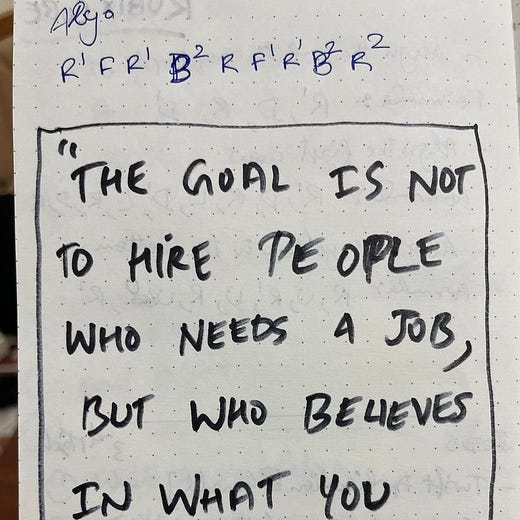 Algo
R' F R' B² R F' R' B² R²
"THE GOAL IS NOT
TO HIRE PEOPLE
WHO NEEDS A JOB,
BUT WHO BELIEVES
IN WHAT YOU